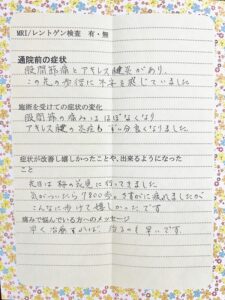 MRI/レントゲン検査 有・無
通院前の症状
股関節痛とアキレス腱炎があり、
この先の歩行に不安を感じていました
施術を受けての症状の変化
股関節の痛みはほぼなくなり
アキレス腱の炎症も だいぶ良くなりました
症状が改善し嬉しかったことや、出来るようになった
こと
先日は梅の花見に行ってきました
気がついたら7800歩。さすがに疲れましたが
こんなに歩けて嬉しかったです
痛みで悩んでいる方へのメッセージ
早く治療すれば、治るのも早いです。